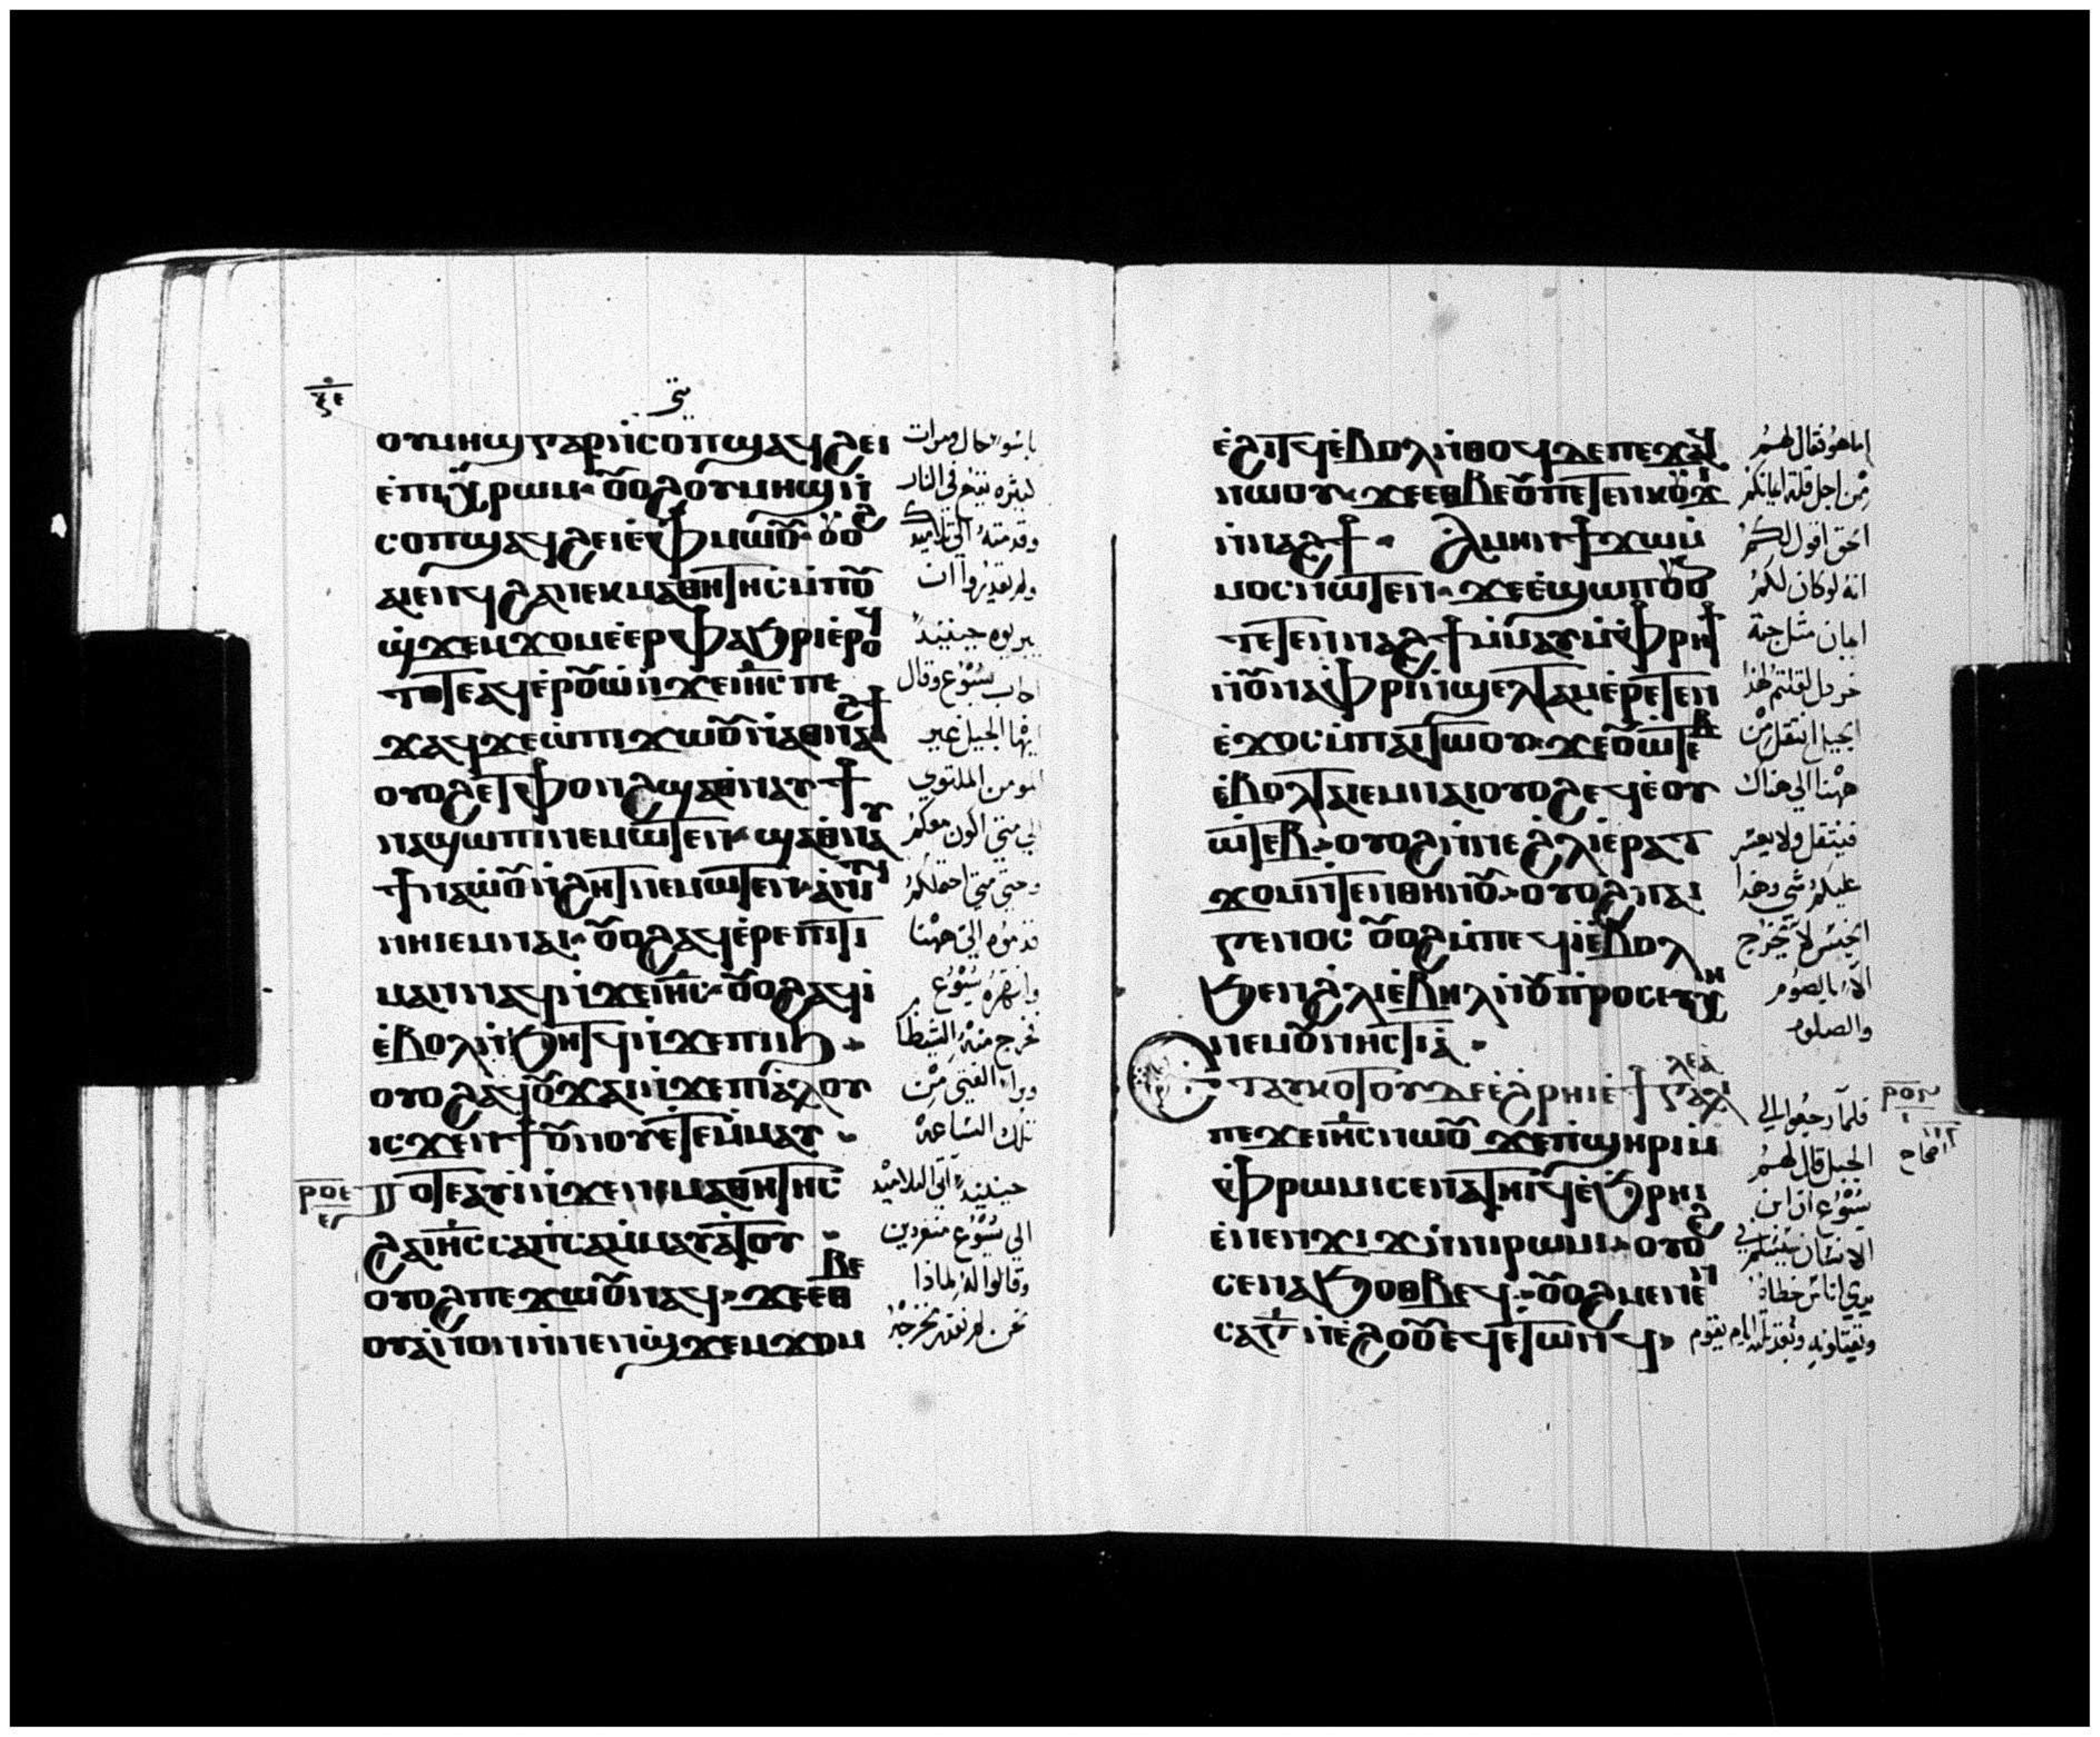 متى
ⲟⲩⲙⲏϣ ⲅⲁⲣ ⲛ̇ⲥⲟⲡ ϣⲁϥϩⲉⲓ
ⲉ̇ⲡⲓⲭⲣⲱⲙ · ⲟⲩⲟϩ ⲟⲩⲙⲏϣ ⲛ̇
ⲥⲟⲡ ϣⲁϥϩⲉⲓ ⲉ̇ⲫⲙⲱⲟⲩ · ⲟⲩⲟϩ
ⲁⲓⲉⲛϥ ϩⲁ ⲛⲉⲕⲙⲁⲑⲏⲧⲏⲥ ⲙ̇ⲡⲟⲩ
ϣ̇ϫⲉⲙϫⲟⲙ ⲉ̇ⲉⲣⲫⲁϧⲣⲓ ⲉ̇ⲣⲟϥ
ⲧⲟⲧⲉ ⲁϥⲉ̇ⲣⲟⲩⲱ̇ ⲛ̇ϫⲉ ⲓⲏ̅ⲥ̅ ⲡⲉ
ϫⲁϥ ϫⲉ ⲱ̇ ⲡⲓϫⲱⲟⲩ ⲛ̇ⲁⲑⲛⲁϩϯ
ⲟⲩⲟϩ ⲉⲧⲫⲟⲛϩ ϣⲁⲑⲛⲁⲩ ϯ
ⲛⲁϣⲱⲡⲓ ⲛⲉⲙⲱⲧⲉⲛ · ϣⲁⲑⲛⲁⲩ
ϯⲛⲁⲱ̇ⲟⲩ ⲛ̇ϩⲏⲧ ⲛⲉⲙⲱⲧⲉⲛ · ⲁ̇ⲛⲓⲧϥ
ⲛⲏⲓ ⲉ̇ⲙⲛⲁⲓ · ⲟⲩⲟϩ ⲁϥⲉ̇ⲣⲉⲡⲓⲧⲓ
ⲙⲁⲛ ⲛⲁϥ ⲛ̇ϫⲉ ⲓⲏ̅ⲥ̅ · ⲟⲩⲟϩ ⲁϥⲓ̇
ⲉ̇ⲃⲟⲗ ⲛ̇ϧⲏⲧϥ ⲛ̇ϫⲉ ⲡⲓⲓϧ
ⲟⲩⲟϩ ⲁϥⲟⲩϫⲁⲓ ⲛ̇ϫⲉ ⲡⲓⲁ̇ⲗⲟⲩ
ⲓⲥϫⲉⲛ ϯⲟⲩⲛⲟⲩ ⲉ̇ⲧⲉⲙ̇ⲙⲁⲩ ·
ⲣⲟⲉ ⲧⲟⲧⲉ ⲁⲩⲓ̇ ⲛ̇ϫⲉ ⲛⲉⲙⲁⲑⲏⲧⲏⲥ
ϩⲁ ⲓⲏ̅ⲥ̅ ⲥⲁⲡ̇ⲥⲁ ⲙ̇ⲙⲁⲩⲁⲧⲟⲩ
ⲟⲩⲟϩ ⲡⲉϫⲱⲟⲩ ⲛⲁϥ · ϫⲉ ⲉⲑⲃⲉ
ⲟⲩ ⲁ̇ⲛⲟⲛ ⲙ̇ⲡⲉⲛϣ̇ϫⲉⲙϫⲟⲙ
كثيره يقع في النار
ولم يقدروا ان
يبروه حينيذ
اجاب يسوع وقال
ايها الجيل غير
المومن الملتوي
الي متى اكون معكم
وحتى متى احتملكم
قدموه الي ههنا
وانتهره يسوع
وبرا الفتى من
تلك الساعة
حينيذ اتى التلاميذ
الى يسوع منفردين
وقالوا له لماذا
نحن لم نقدر نخرجه
ⲉ̇ϩⲓⲧϥ ⲉ̇ⲃⲟⲗ ⲛ̇ⲑⲟϥ ⲇⲉ ⲡⲉϫⲁϥ
ⲛⲱⲟⲩ · ϫⲉ ⲉⲑⲃⲉ ⲟⲩ ⲡⲉⲧⲉⲛⲕⲟⲩϫⲓ
ⲛ̇ⲛⲁϩϯ · ⲁ̇ⲙⲏⲛ ϯϫⲱ ⲙ̇
ⲙⲟⲥ ⲛⲱⲧⲉⲛ · ϫⲉ ⲉ̇ϣⲱⲡ ⲟⲩⲟ
ⲧⲉⲧⲉⲛ ⲛⲁϩϯ ⲙ̇ⲙⲁⲩ ⲙ̇ⲫⲣⲏϯ
ⲛ̇ⲟⲩⲛⲁⲫⲣⲓ ⲛ̇ϣⲉⲗⲧⲁⲙ ⲉ̇ⲣⲉⲧⲉⲛ
ⲉ̇ϫⲟⲥ ⲙ̇ⲡⲁⲓⲧⲱⲟⲩ · ϫⲉ ⲟⲩⲱ̇ⲧⲉⲃ
ⲉ̇ⲃⲟⲗ ⲧⲁⲓ ⲉ̇ⲙⲛⲁⲓ ⲟⲩⲟϩ ⲉϥⲉ̇ⲟⲩ
ⲱ̇ⲧⲉⲃ · ⲟⲩⲟϩ ⲛ̇ⲛⲉ ϩ̇ⲗⲓ ⲉ̇ⲣⲁⲧ
ϫⲟⲙ ⲛ̇ⲧⲉⲛⲑⲏⲛⲟⲩ · ⲟⲩⲟϩ ⲡⲁⲓ
ⲅⲉⲛⲟⲥ ⲟⲩⲟϩ ⲙ̇ⲡⲉϥⲓ̇ ⲉ̇ⲃⲟⲗ
ϧⲉⲛ ϩ̇ⲗⲓ ⲉ̇ⲃⲏⲗ ⲛ̇ⲟⲩⲡⲣⲟⲥⲉⲩⲭⲏ
ⲛⲉⲙ ⲟⲩⲛⲏⲥⲧⲓⲁ̇ ·
ⲉⲧⲁⲩⲕⲟⲧⲟⲩ ⲇⲉ ⲉ̇ϩⲣⲏⲓ ⲉ̇ϯⲅⲁⲗⲓⲗⲉⲁ
ⲡⲉϫⲉ ⲓⲏ̅ⲥ̅ ⲛⲱⲟⲩ ϫⲉ ⲡ̇ϣⲏⲣⲓ ⲙ̇
ⲫⲣⲱⲙⲓ ⲥⲉⲛⲁⲧⲏⲓϥ ⲉ̇ϧⲣⲏⲓ
ⲉ̇ⲛⲉⲛϫⲓϫ ⲛ̇ⲛⲓⲣⲱⲙⲓ · ⲟⲩⲟϩ
ⲥⲉⲛⲁϧⲟⲑⲃⲉϥ · ⲟⲩⲟϩ ⲙⲉⲛⲉⲛ
ⲥⲁ ⲅ̅ ⲛ̇ⲉϩⲟⲟⲩ ⲉϥⲉⲧⲱⲛϥ
اما هو فقال لهم
من اجل قلة ايمانكم
الحق اقول لكم
انه لو كان لكم
ايمان مثل حبة
خردل لقلتم لهذا
الجبل انتقل من
ههنا الي هناك
فينتقل ولا يعسر
عليكم شي وهذا
الجنس لا يخرج
الا بالصوم
والصلوه
فلما رجعوا الي
الجبل قال لهم
يسوع ان ابن
الانسان سيسلم في
ويقتلونه وبعد ثلثه ايام يقوم